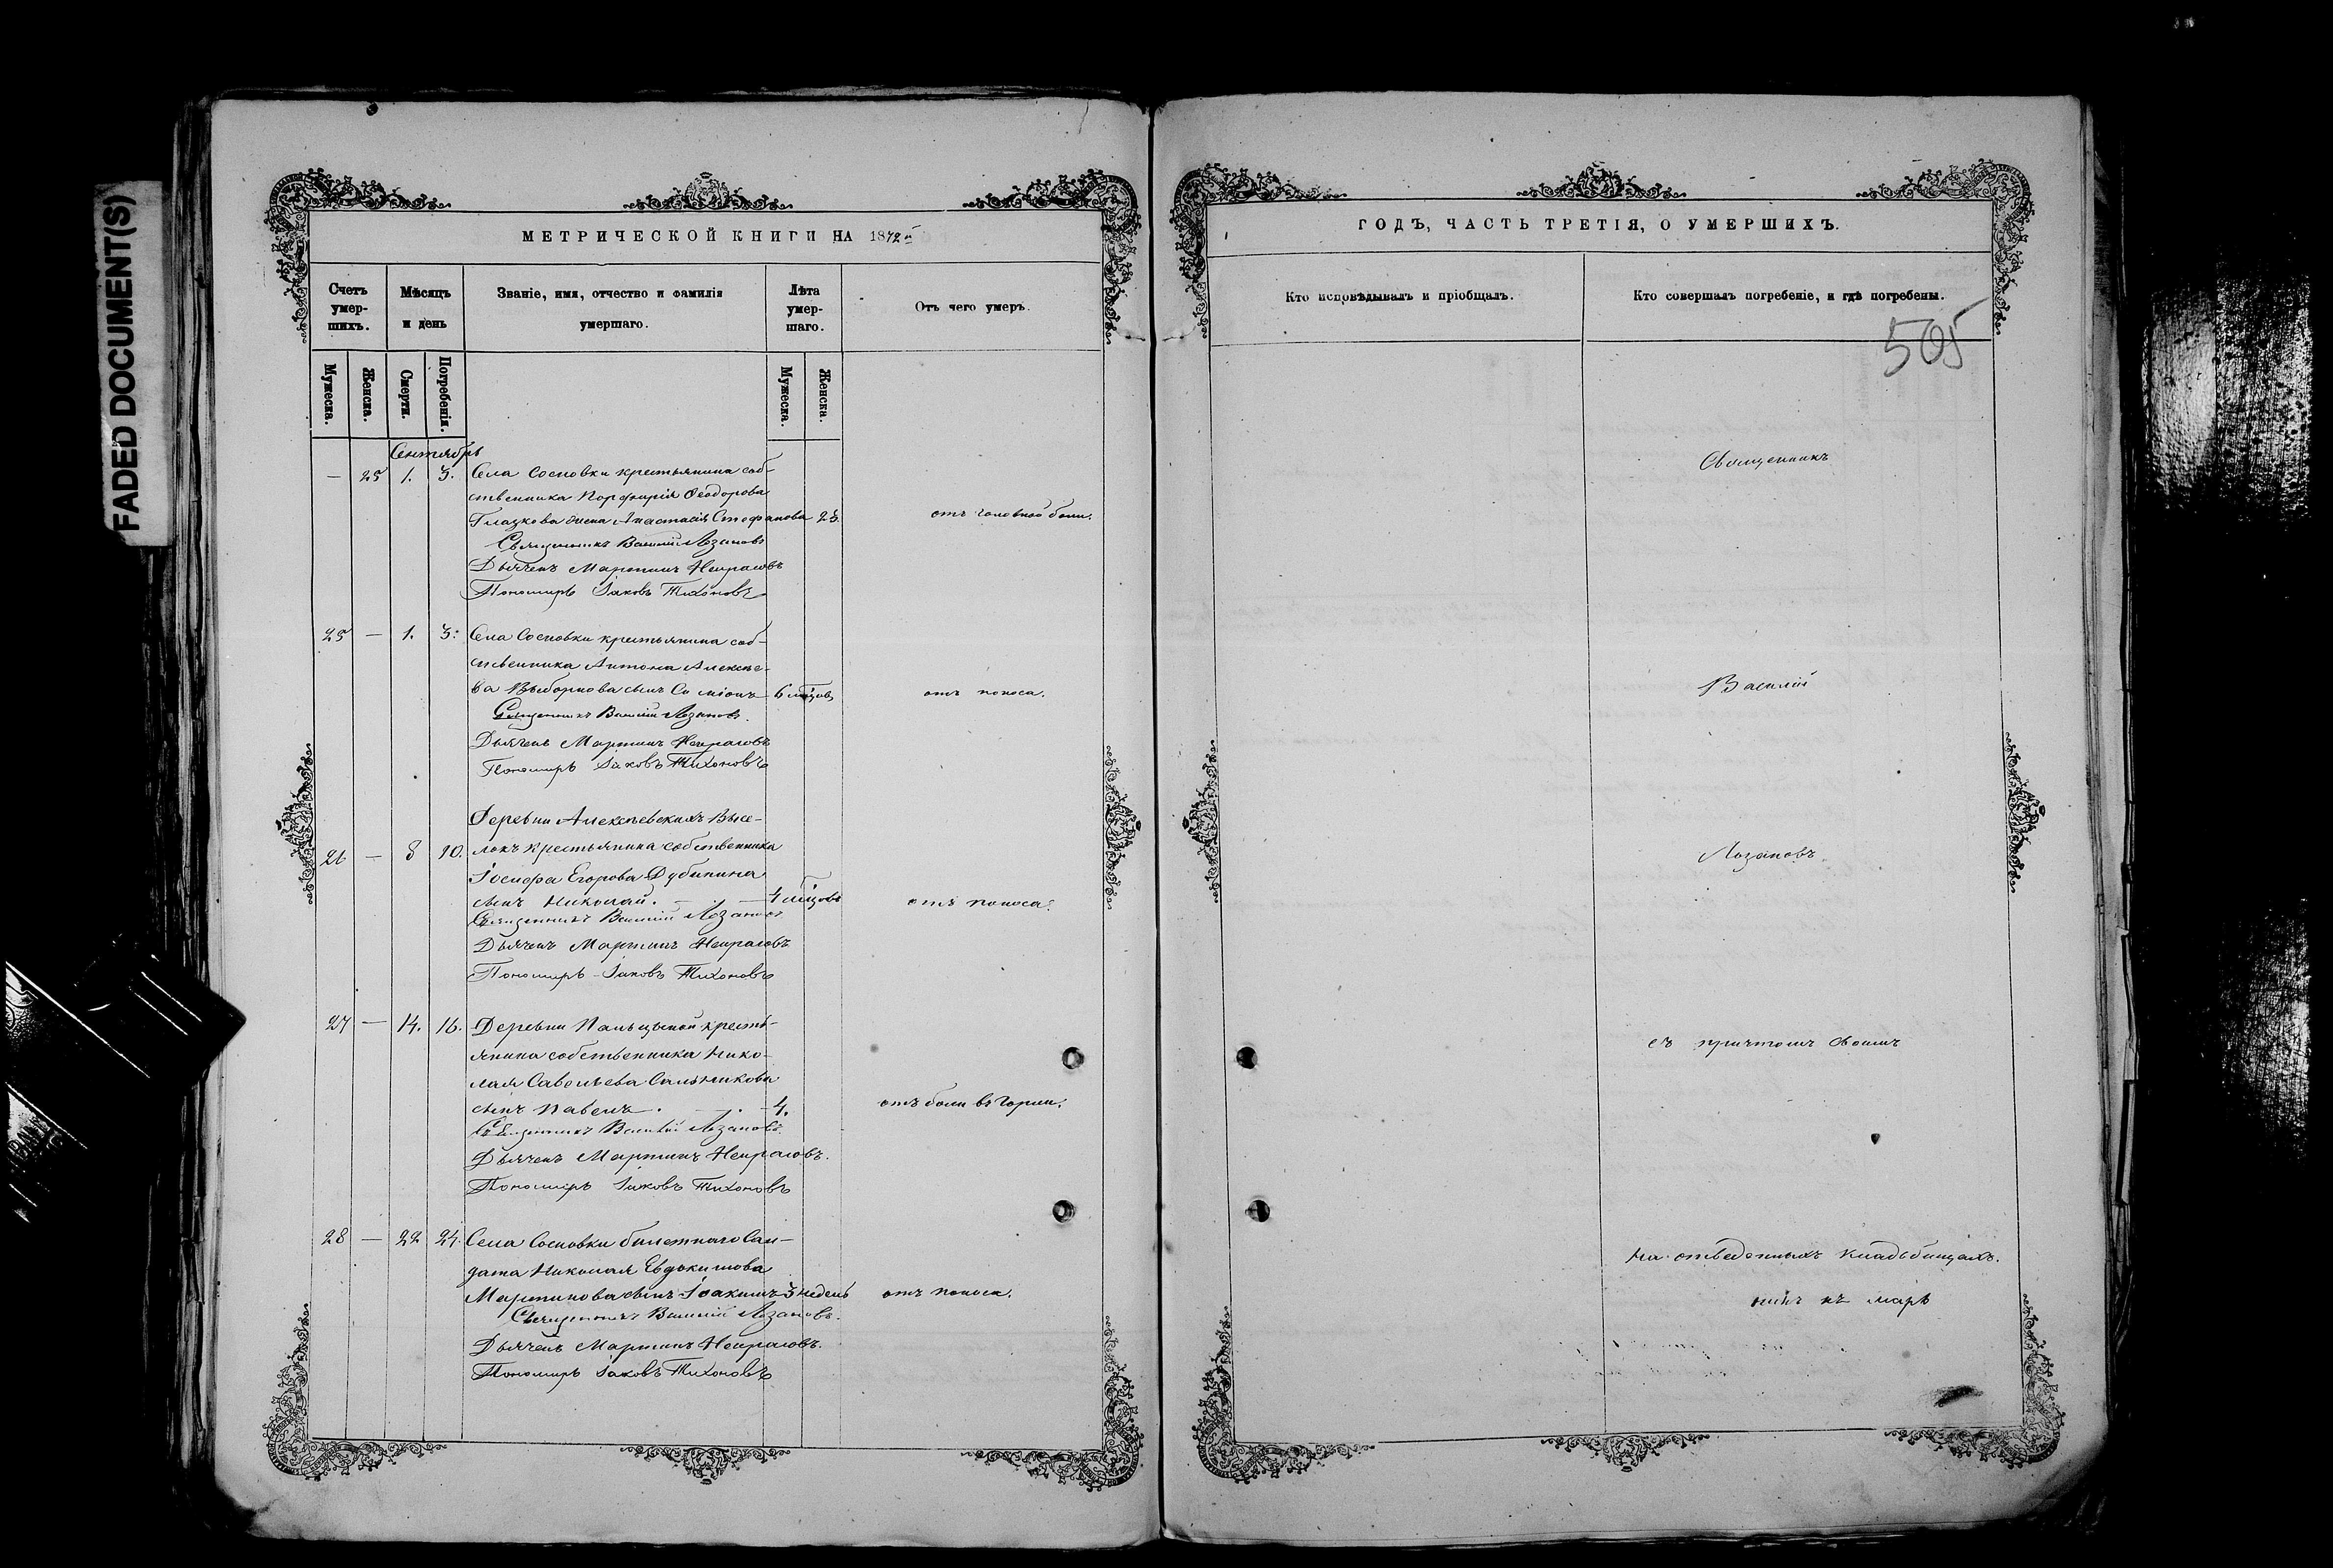 FADED DOCUMENT(S)
МЕТРИЧЕСКОЙ КНИГИ НА 1872й
Счетъ умер-шихъ.
Мѣсяцъ и день
Званіе, имя, отчество и фамилія умершаго.
Лѣта умер-шаго.
Отъ чего умеръ.
Мужеска.
Женска.
Смерти.
Погребенія.
Мужеска.
Женска.
Сентябрь
— 25 1. 3. Села Сосновки крестьянина соб-
ственника Порфирія Ѳеодорова
Глазкова жена Анастасія Стефанова 23. отъ головной боли.
Священникъ Василій Лозановъ
Дьячекъ Мартинъ Некрасовъ
Пономарь Іаковъ Тихоновъ
25 — 1. 3. Села Сосновки крестьянина соб-
ственника Антона Алексѣе-
ва Выборнова сынъ Симіонъ 6 мѣсцовъ отъ поноса.
Священникъ Василій Лозановъ.
Дьячекъ Мартинъ Некрасовъ
Пономарь Іаковъ Тихоновъ
Деревни Алексѣевскихъ Высе-
26 — 8 10. локъ крестьянина собственника
Іосифа Егорова Дубинина
сынъ Николай. — 4 мѣсцовъ отъ поноса.
Священникъ Василій Лозановъ
Дьячекъ Мартинъ Некрасовъ
Пономарь Іаковъ Тихоновъ
27 — 14. 16. Деревни крестъ-
янина собственника Нико-
лая Савельева Сальникова
сынъ Павелъ. — 4. отъ боли въ горлѣ.
Священникъ Василій Лозановъ.
Дьячекъ Мартинъ Некрасовъ.
Пономарь Іаковъ Тихоновъ
28 — 22 24. Села Сосновки билетнаго Сол-
дата Николая Евдокимова
Мартинова сынъ Іоакимъ 3 недель отъ поноса.
Священникъ Василій Лозановъ.
Дьячекъ Мартинъ Некрасовъ.
Пономарь Іаковъ Тихоновъ
ГОДЪ, ЧАСТЬ ТРЕТІЯ, О УМЕРШИХЪ.
Кто исповѣдывалъ и пріобщалъ.
Кто совершалъ погребеніе, и гдѣ погребены.
505
Священникъ
Василій
Лозановъ
съ причтомъ своимъ
на отведенныхъ кладбищахъ.